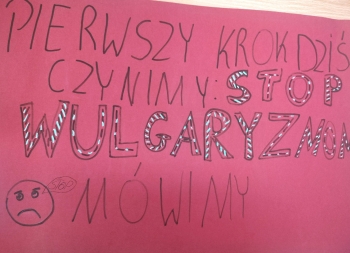 PIERWSZY KROK DZIŚ
CZYNIMY: STOP
WULGARYZMOM
MÓWIMY